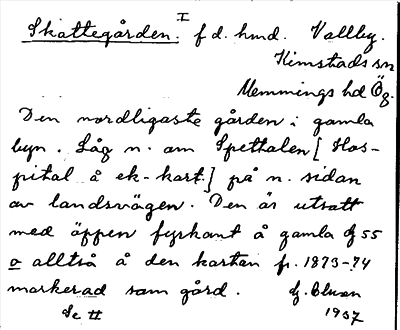 I
Skattegården. f d. hmd. Vallby.
Kimstads sn
Memmings hd Ög.
Den nordligaste gården i gamla
byn. Låg n. om Spettalen [Hos-
pital å ek-kart.] på n. sidan
av landsvägen. Den är utsatt
med öppen fyrkant å gamla 55
o alltså å den kartan fr. 1873-74
markerad som gård.
Se II 1937